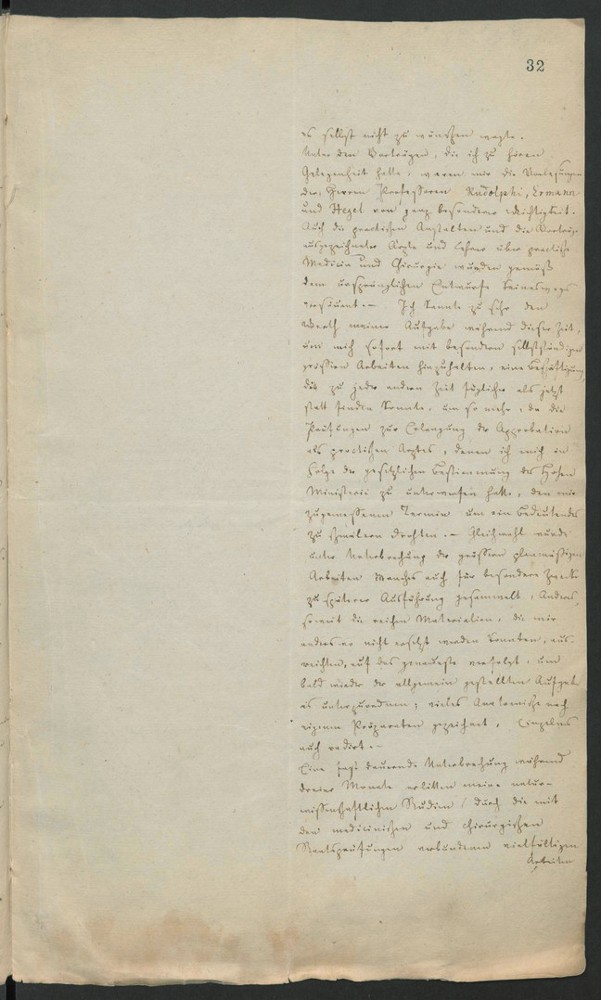 32
es selbst nicht zu wünschen wagte.
Unter den Vorträgen, die ich zu hören
Gelegenheit hatte, waren mir die Vorlesungen
der Herren Professoren Rudolphi, Erman
und Hegel von ganz besonderer Wichtigkeit.
Auch die practischen Anstalten und die Vorträge
ausgezeichneter Aerzte und Lehrer über practische
Medicin und Chirurgie wurden gemäß
dem ursprünglichen Entwurfe keineswegs
versäumt. – Ich kannte zu sehr den
Werth meiner Aufgabe während dieser Zeit,
um mich sofort mit besondern selbstständigen
größern Arbeiten hinzuhalten, eine Beschäftigung
die zu jeder andern Zeit füglicher als jetzt
statt finden konnte, um so mehr, da die
Prüfungen zur Erlangung der Approbation
als practischen Arztes, denen ich mich in
Folge der gesetzlichen Bestimmung des Hohen
Ministerii zu unterwerfen hatte, den mir
zugemessenen Termin um ein Bedeutendes
zu schmälern drohten. – Gleichwohl wurde
unter Unterbrechung der größern planmäßigen
Arbeiten Manches auch für besondere Zwecke
zu späterer Ausführung gesammelt, Anderes,
soweit die reichen Materialien, die mir
anderswo nicht ersetzt werden konnten, aus-
reichten, auf das genaueste verfolgt, um
bald wieder der allgemein gestellten Aufgabe
es unterzuordnen; vieles Anatomische nach
eigenen Präparaten gezeichnet, Einzelnes
auch radirt. –
Eine fast dauernde Unterbrechung während
dreier Monate erlitten meine natur-
wissenschaftlichen Studien durch die mit
den medicinischen und chirurgischen
Staatsprüfungen verbundenen vielfältigen
Arbeiten